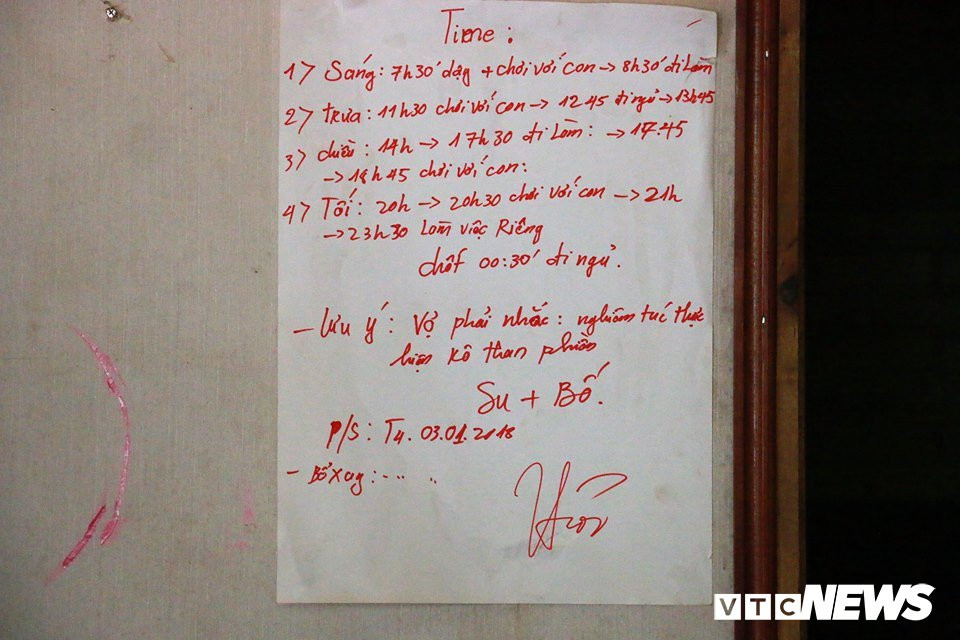 Time:
1> Sáng: 7h30' dậy + chơi với con → 8h30' đi làm
2> trưa: 11h30 chơi với con → 12 45 đi ngủ → 13h45
3> chiều: 14h → 17h30 đi làm: → 17.45
→ 18h45 chơi với con:
4> Tối: 20h → 20h30 chơi với con → 21h
→ 23h30 Làm việc Riêng
chốt 00:30' đi ngủ.
– Lưu ý: Vợ phải nhắc: nghiêm túc thực
hiện kô than phiền
Su + Bố.
P/S: T4. 03.01.2018
– Bổ xag: ... ..
VTC NEWS